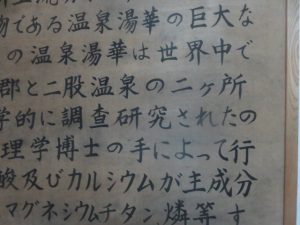 物である温泉湯華の巨大な
の温泉湯華は世界中で
郡と二股温泉の二ヶ所
学的に調査研究されたの
理学博士の手によって行
酸及びカルシウムが主成分
マグネシウムチタン燐等す